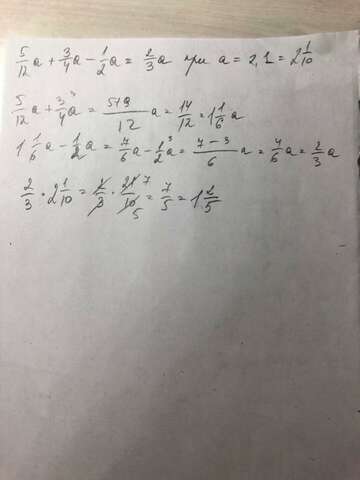 5/12 a + 3/4 a - 1/2 a = 2/3 a при a = 2,1 = 2 1/10
5/12 a + 3/4 ³ a = 5+9/12 a = 14/12 = 1 1/6 a
1 1/6 a - 1/2 a = 7/6 a - 1/2 ³ a = 7-3/6 a = 4/6 a = 2/3 a
2/3 · 2 1/10 = 2/3 · 21/10 ⁷ ₅ = 7/5 = 1 2/5